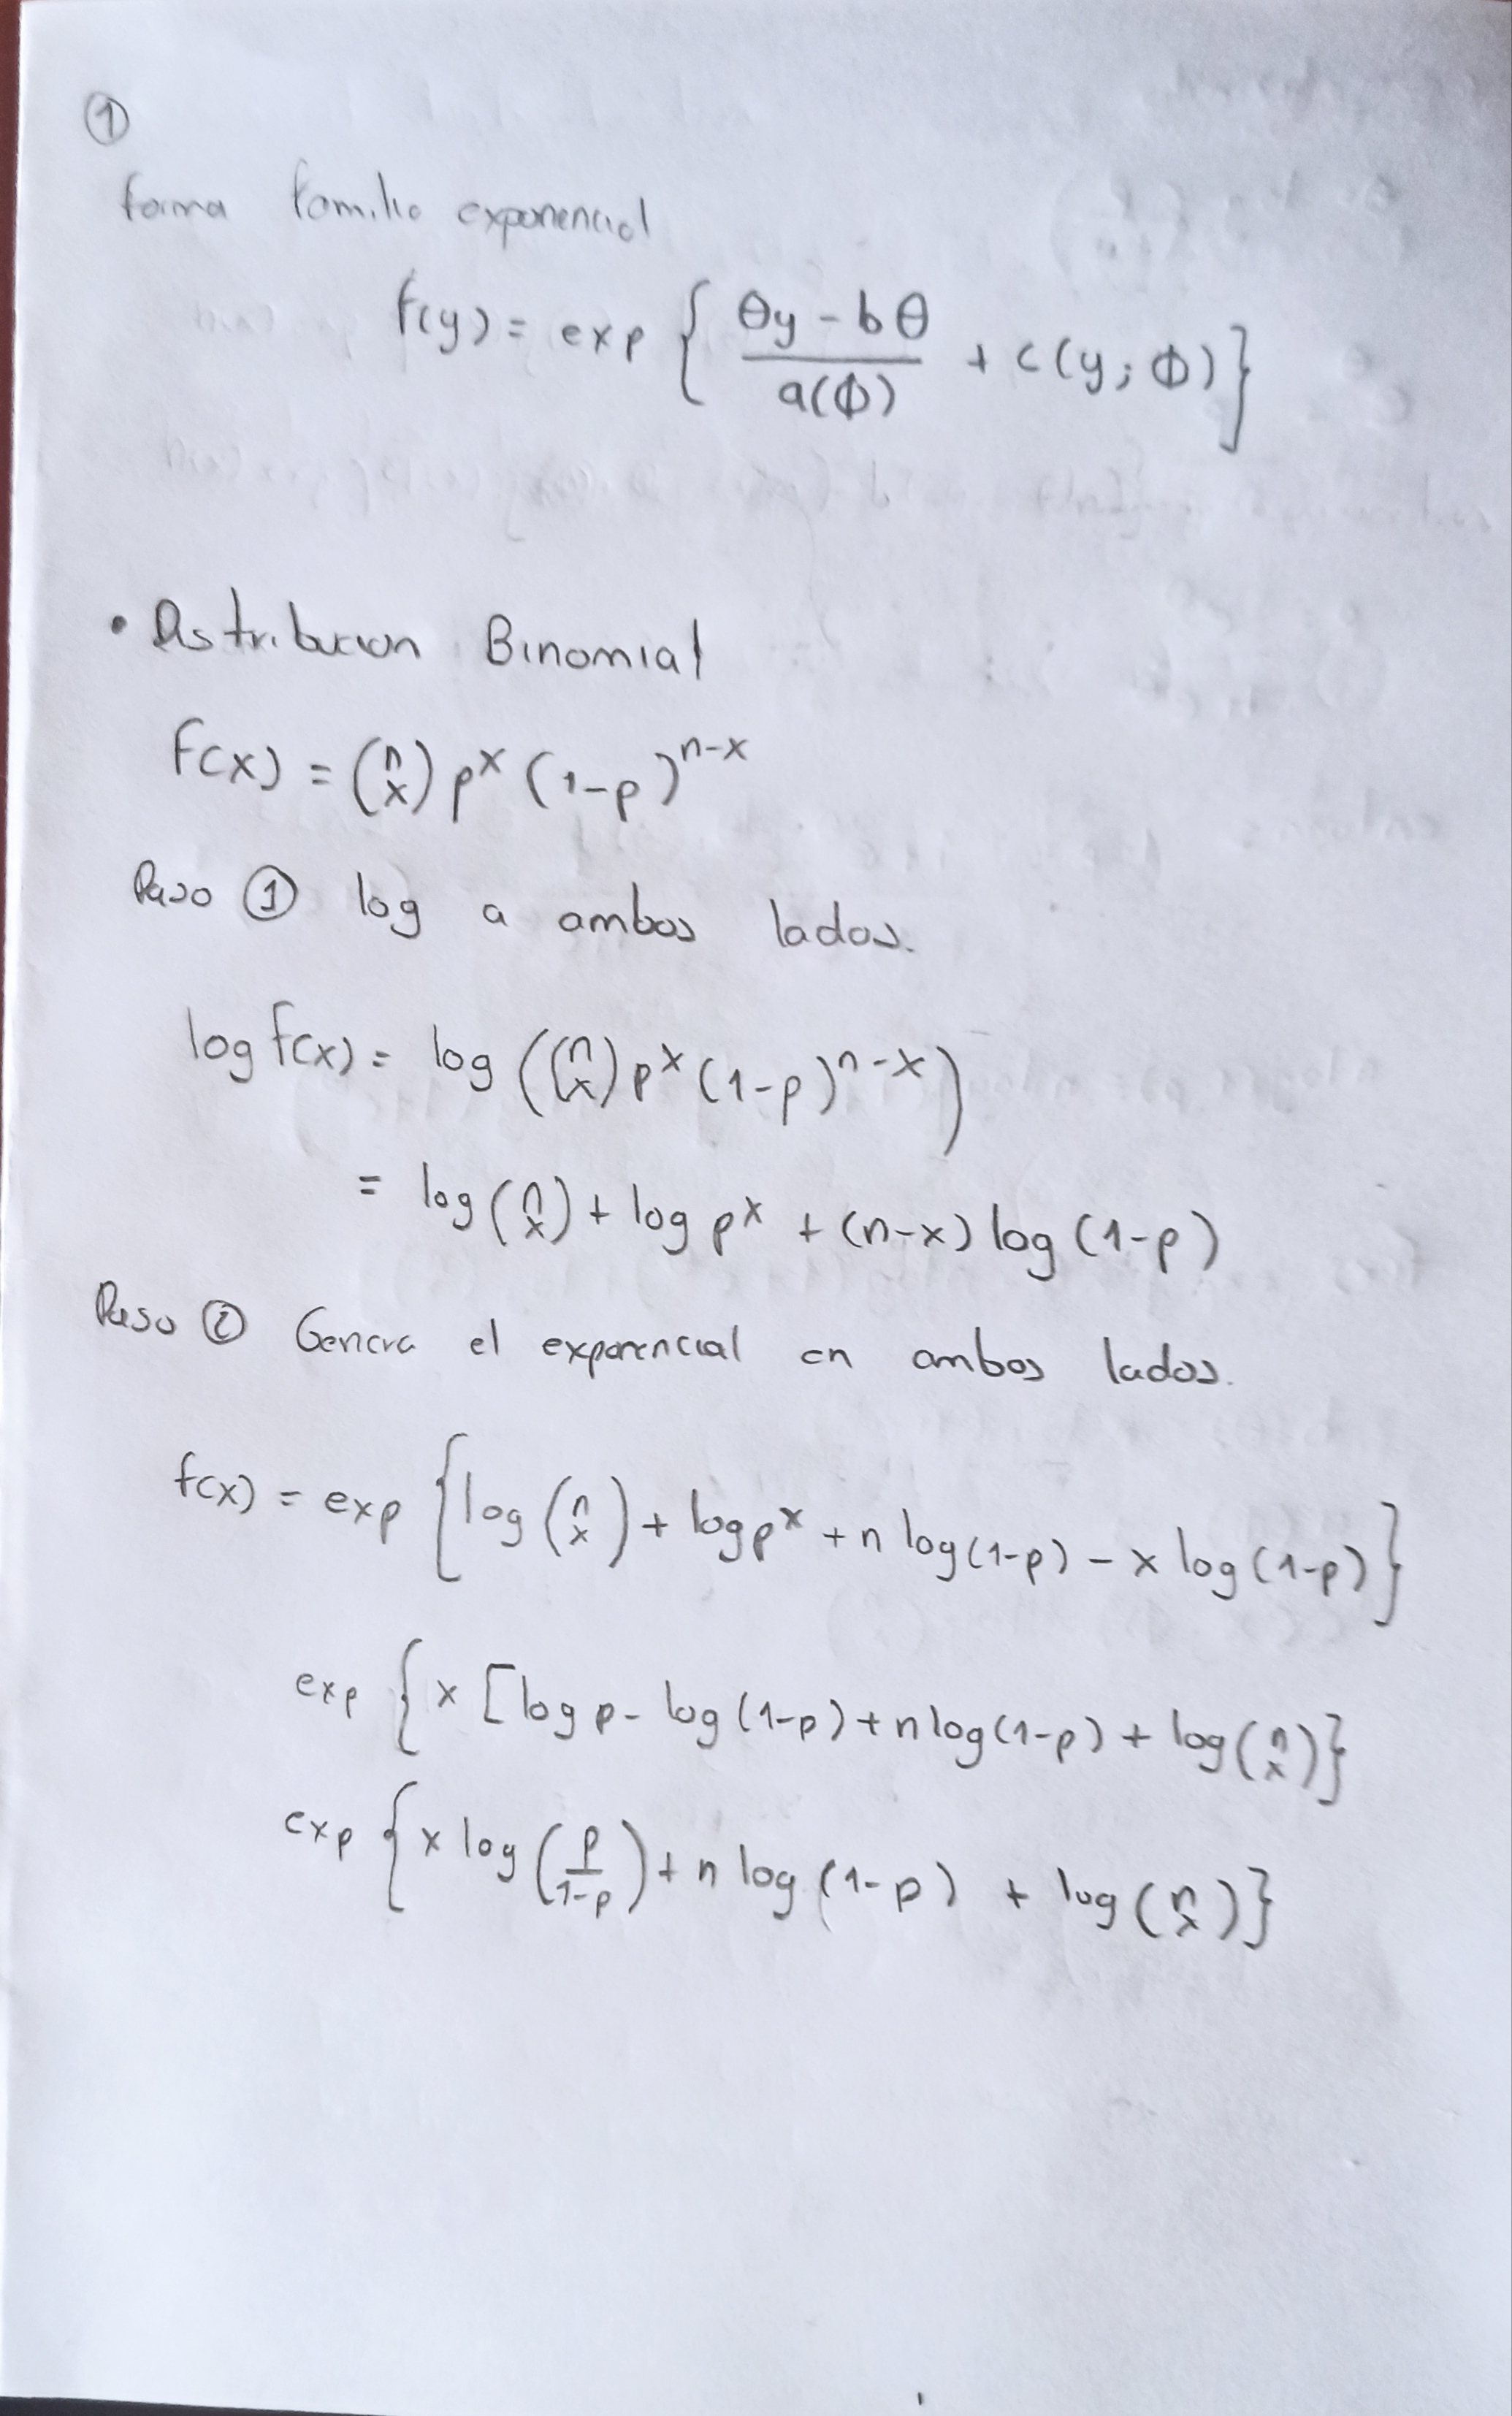 ①
forma familia exponencial
f(y) = exp { θy - bθ / a(Φ) + c(y; Φ)}
• Distribucion Binomial
f(x) = (n x) p^x (1-p)^n-x
Paso ① log a ambos lados.
log f(x) = log ((n x) p^x (1-p)^n-x)
= log (n x) + log p^x + (n-x) log (1-p)
Paso ② Genera el exponencial en ambos lados.
f(x) = exp {log (n x) + log p^x + n log (1-p) - x log (1-p)}
exp {x [log p - log (1-p) + n log (1-p) + log (n x)}
exp {x log (p/1-p) + n log (1-p) + log (n x)}